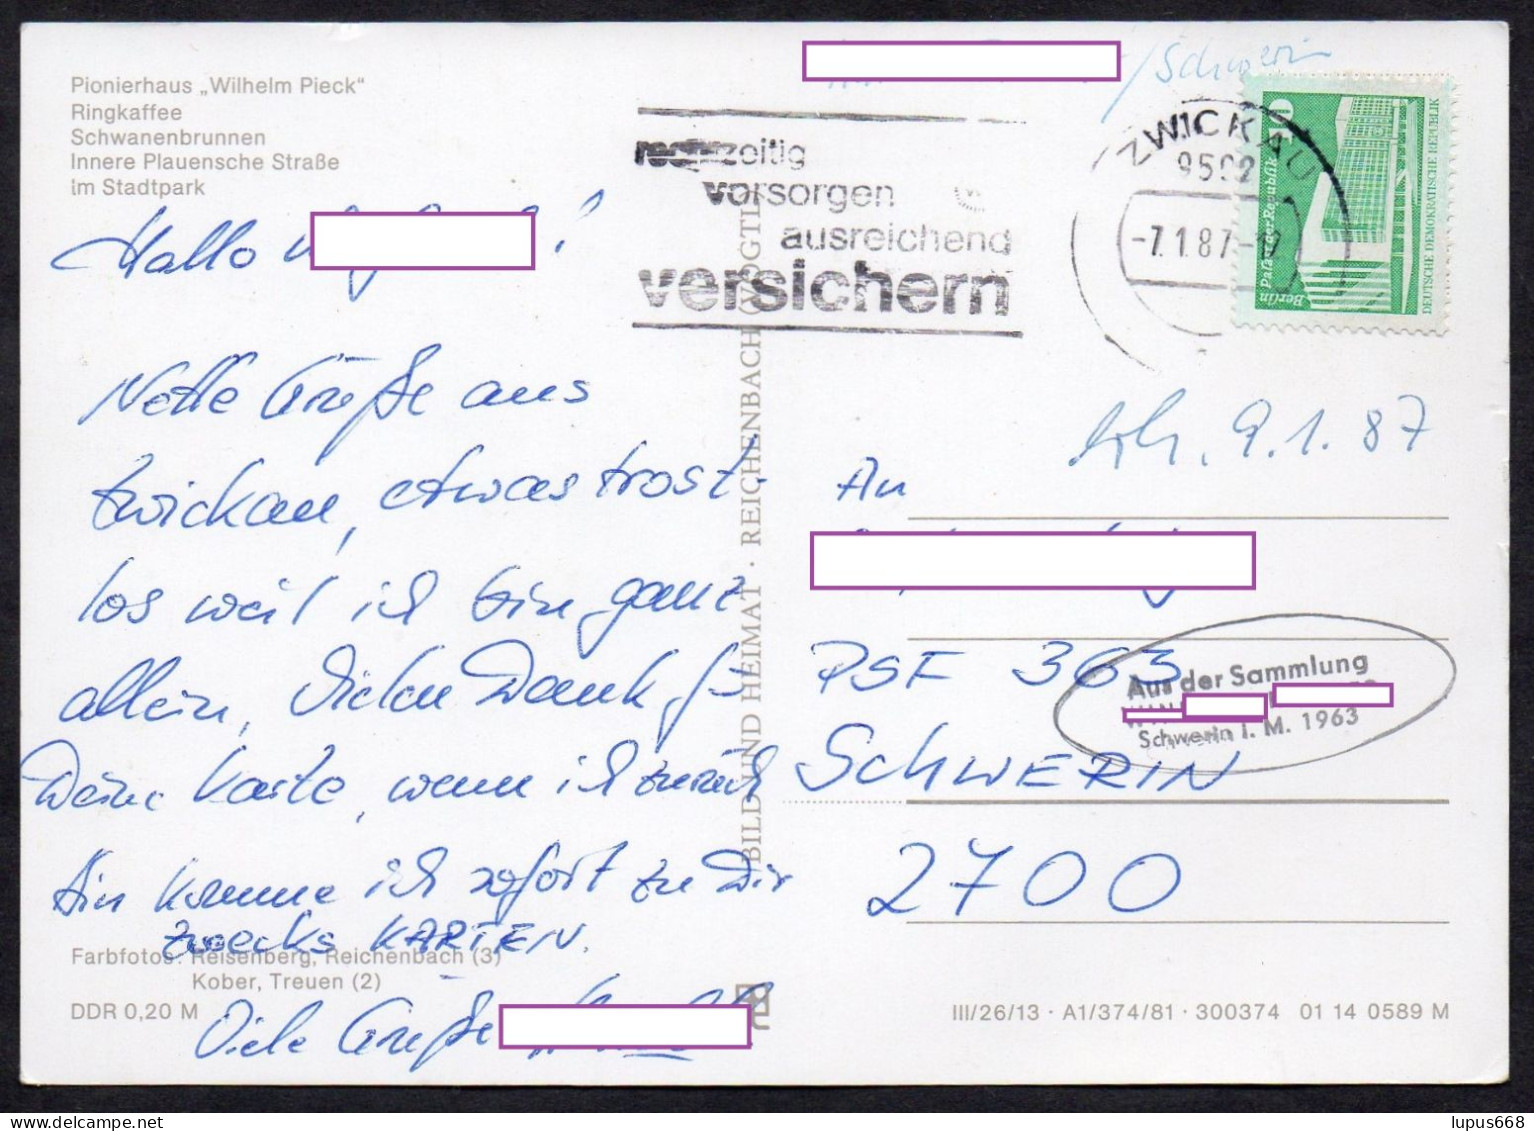 Pionierhaus „Wilhelm Pieck“
Ringkaffee
Schwanenbrunnen
Innere Plauensche Straße
Im Stadtpark
/Schwerin
rechtzeitig
vorsorgen
ausreichend
versichern
ZWICKAU
9502
-7.1.87-17
10
Berlin Palast der Republik
DEUTSCHE DEMOKRATISCHE REPUBLIK
Hallo
Nette Grüße aus
Zwickau, etwas trost-
los weil ich bin ganz
allein, Vielen Dank f.
Deine Karte, wenn ich zurück
bin komme ich sofort zu Dir
zwecks KARTEN.
Viele Grüße
Farbfotos: Reisenberg, Reichenbach (3)
Kober, Treuen (2)
DDR 0,20 M
BILD UND HEIMAT · REICHENBACH VOGTL
erh. 9.1.87
An
PSF 363
SCHWERIN
2700
Aus der Sammlung
Schwerin i. M. 1963
III/26/13 · A1/374/81 · 300374 01 14 0589 M
delcampe.net
lupus668